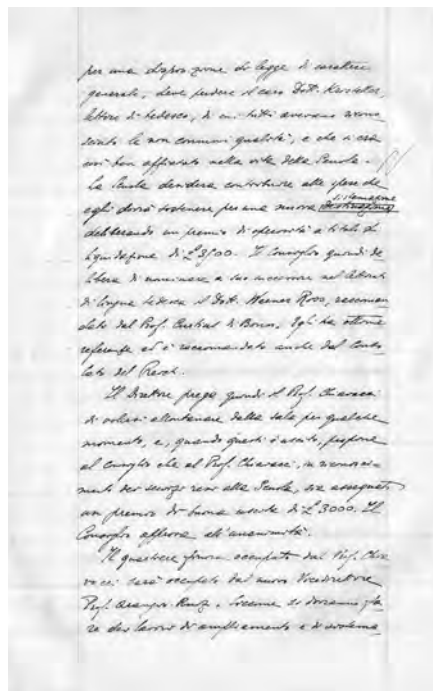 per una disposizione di legge di carattere
generale, deve perdere il caro Dott. Kristeller,
lettore di tedesco, di cui tutti avevano ricono-
sciuto le non comuni qualità, e che si era
così ben affiatato nella vita della Scuola.
La Scuola desidera contribuire alle spese che
egli dovrà sostenere per una nuova sistemazione
deliberando un premio di operosità a titolo di
liquidazione di £ 3500. Il Consiglio quindi de-
libera di nominare a suo successore nel lettorato
di lingua tedesca il Dott. Werner Ross, raccoman-
dato dal Prof. Curtius di Bonn. Egli ha ottime
referenze ed è raccomandato anche dal Conso-
lato del Reich.
Il Direttore prega quindi il Prof. Chiavacci
di volersi allontanare dalla sala per qualche
momento, e, quando questi è uscito, propone
al Consiglio che al Prof. Chiavacci, in riconosci-
mento dei servizi resi alla Scuola, sia assegnato
un premio di buona uscita di £ 3000. Il
Consiglio approva all'unanimità.
Il quartiere finora occupato dal Prof. Chia-
vacci sarà occupato dal nuovo Vicedirettore
Prof. Arangio-Ruiz. Siccome si dovranno fa-
re dei lavori di ampliamento e di sistema